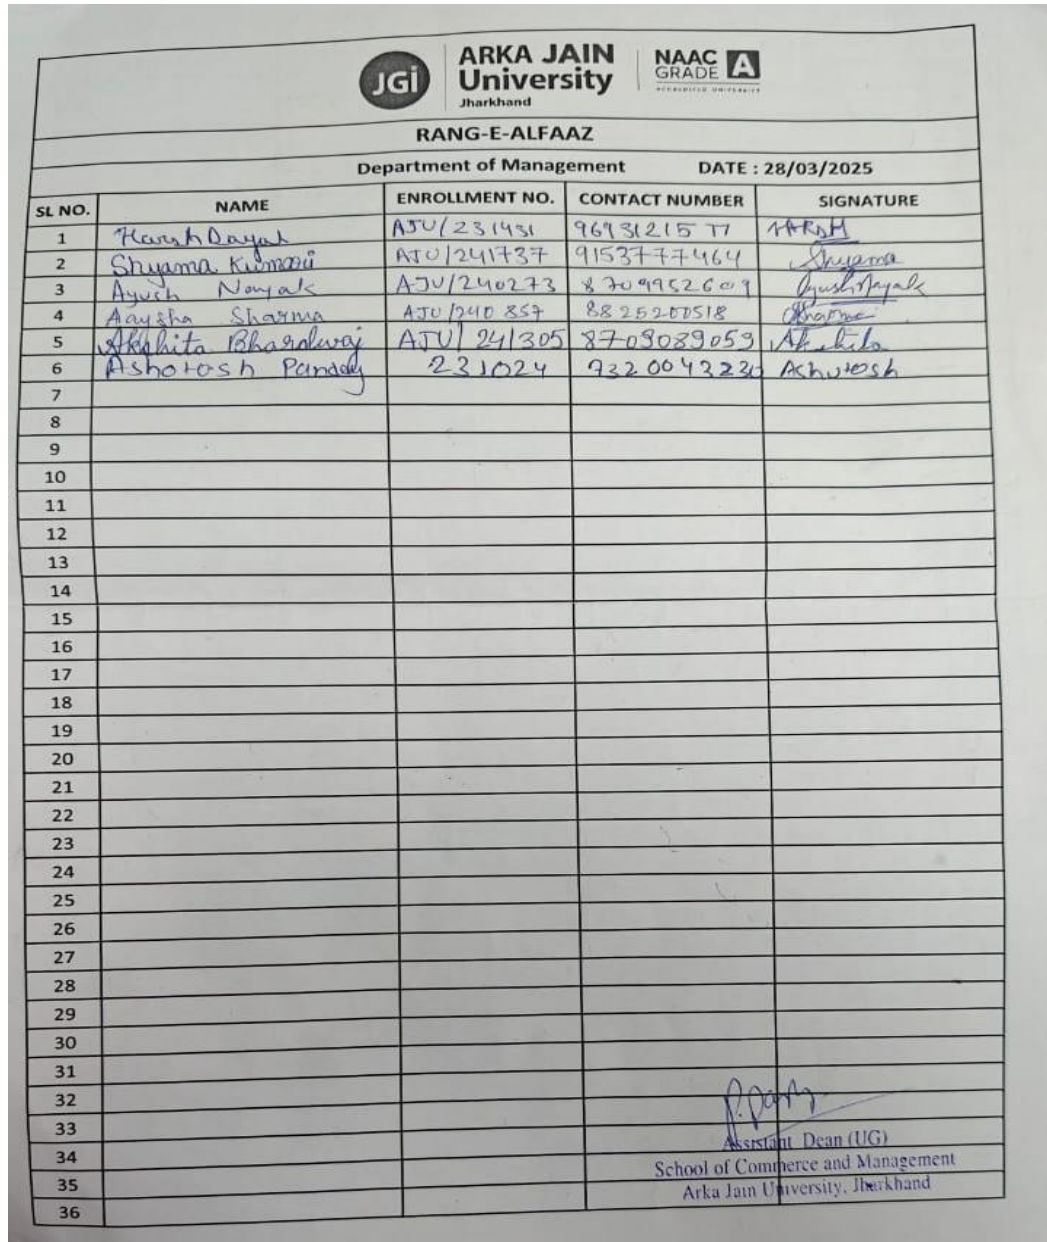 JGi
ARKA JAIN
University
Jharkhand
NAAC
GRADE A
ACCREDITED UNIVERSITY
RANG-E-ALFAAZ
Department of Management DATE : 28/03/2025
SL NO. NAME ENROLLMENT NO. CONTACT NUMBER SIGNATURE
1 Harsh Dayal AJU/231431 HARSH
2 Shyama Kumari AJU/241737 9153777464 Shyama
3 Ayush Nayak AJU/240273 8709952609 Ayush Nayak
4 Aaysha Sharma AJU/240857 8825200518 Sharma
5 Akshita Bharadwaj AJU/241305 8709089059 Akshita
6 Ashotosh Pandey 231024 Ashutosh
7
8
9
10
11
12
13
14
15
16
17
18
19
20
21
22
23
24
25
26
27
28
29
30
31
32
33
34
35
36
Assistant Dean (UG)
School of Commerce and Management
Arka Jain University, Jharkhand